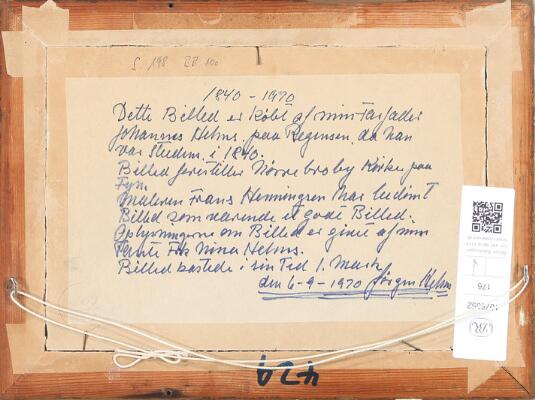 S 198 BB 100
1840 - 1970
Dette Billed er Købt af min Farfader
Johannes Helms. paa Regensen, da han
var Student i 1840.
Billed forestiller Nørre broby Kirke paa
Fyn.
Maleren Frans Henningsen har bedømt
Billed som værende et godt Billed.
Oplysningerne om Billed er givet af min
Tante Frk Nina Helms.
Billed kostede i sin Tid 1. Mark
den 6-9-1970 Jørgen Helms
424
176